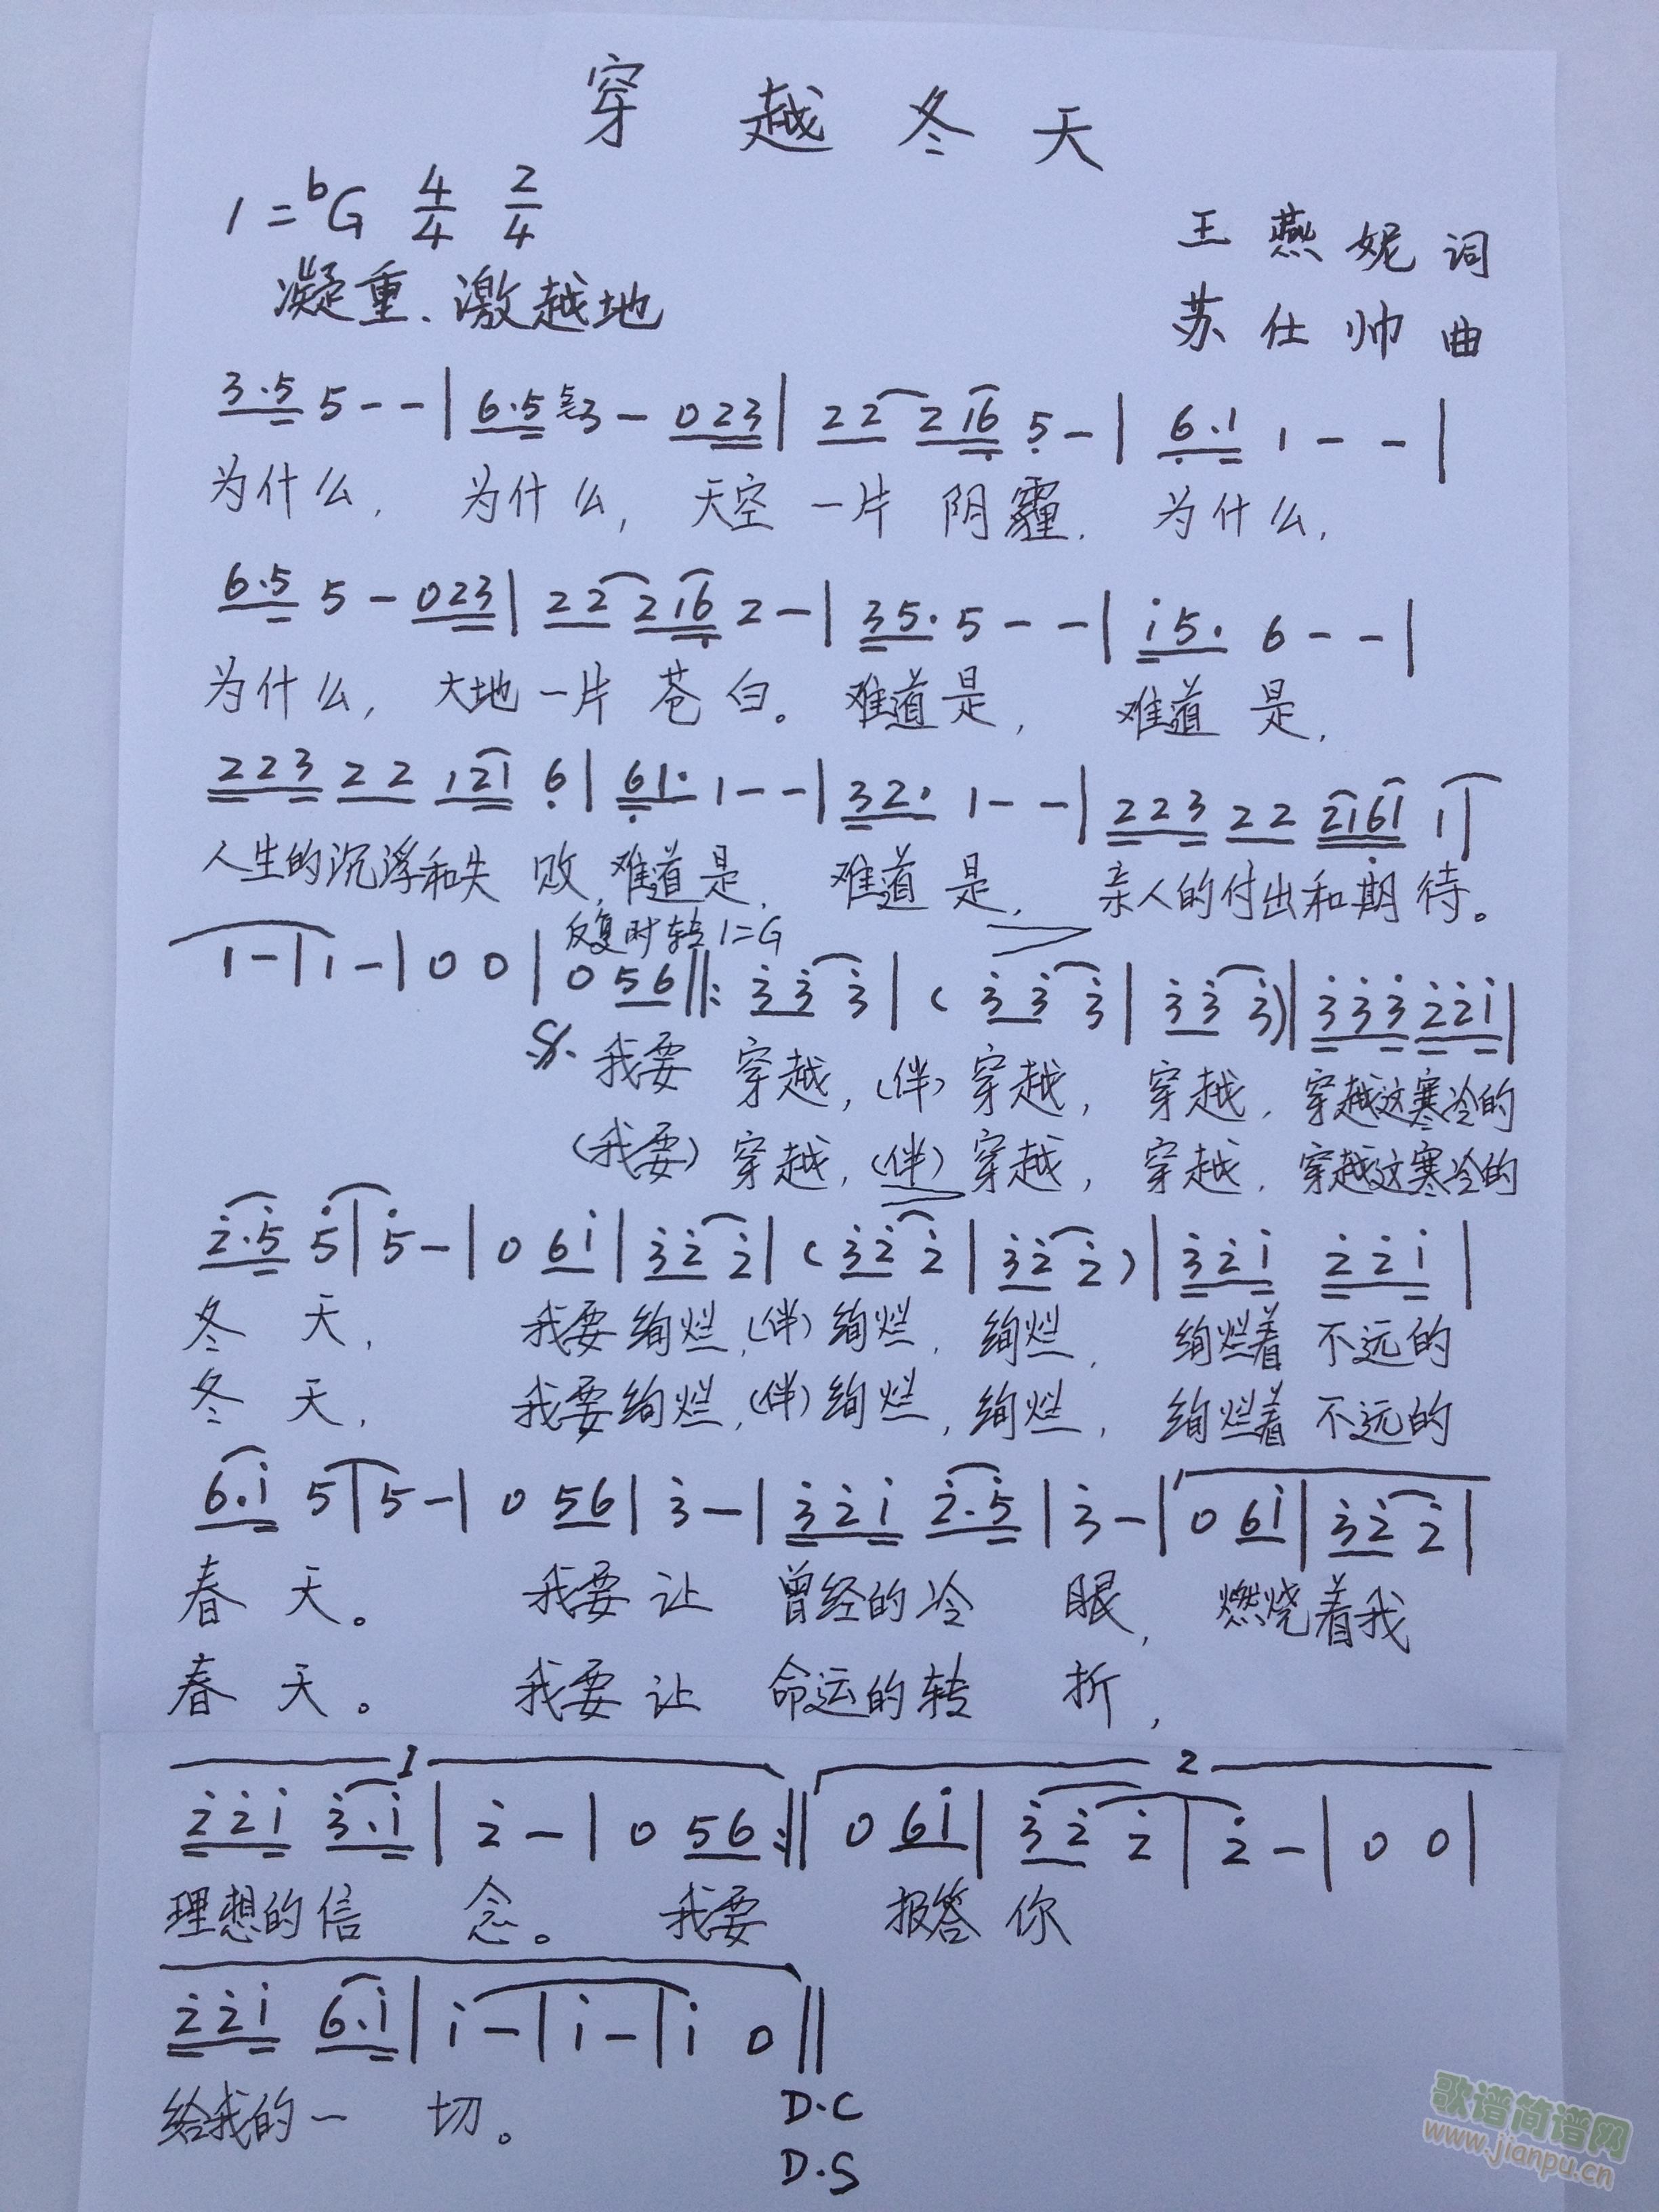 穿越冬天
1=ᵇG 4/4 2/4
王燕妮 词
凝重、激越地
苏仕帅 曲
3·5 5 - - | 6·5 3 - 023 | 22 216 5 - | 6·1 1 - - |
为什么, 为什么, 天空一片阴霾. 为什么,
6·5 5 - 023 | 22 216 2 - | 35· 5 - - | i5· 6 - - |
为什么, 大地一片苍白。难道是, 难道是,
223 22 121 6 | 61· 1 - - | 32· 1 - - | 223 22 2161 1 |
人生的沉浮和失败, 难道是, 难道是, 亲人的付出和期待。
反复时转1=G
1 - | 1 - | 0 0 | 0 56 ‖: 33 3 | ( 33 3 | 33 3 ) | 333 221 |
我要 穿越, (伴) 穿越, 穿越, 穿越这寒冷的
(我要) 穿越, (伴) 穿越, 穿越, 穿越这寒冷的
2·5 5 | 5 - | 0 6i | 32 2 | ( 32 2 | 32 2 ) | 32i 22i |
冬天, 我要绚烂, (伴) 绚烂, 绚烂, 绚烂着不远的
冬天, 我要绚烂, (伴) 绚烂, 绚烂, 绚烂着不远的
6·i 5 | 5 - | 0 56 | 3 - | 32i 2·5 | 3 - | 0 6i | 32 2 |
春天。 我要让 曾经的冷眼, 燃烧着我
春天。 我要让 命运的转折,
1 2
22i 3·i | 2 - | 0 56 :‖ 0 6i | 32 2 | 2 - | 0 0 |
理想的信念。 我要 报答你
22i 6·i | i - | i - | i 0 ‖
给我的一切。 D.C
D.S
歌谱简谱网
www.jianpu.cn